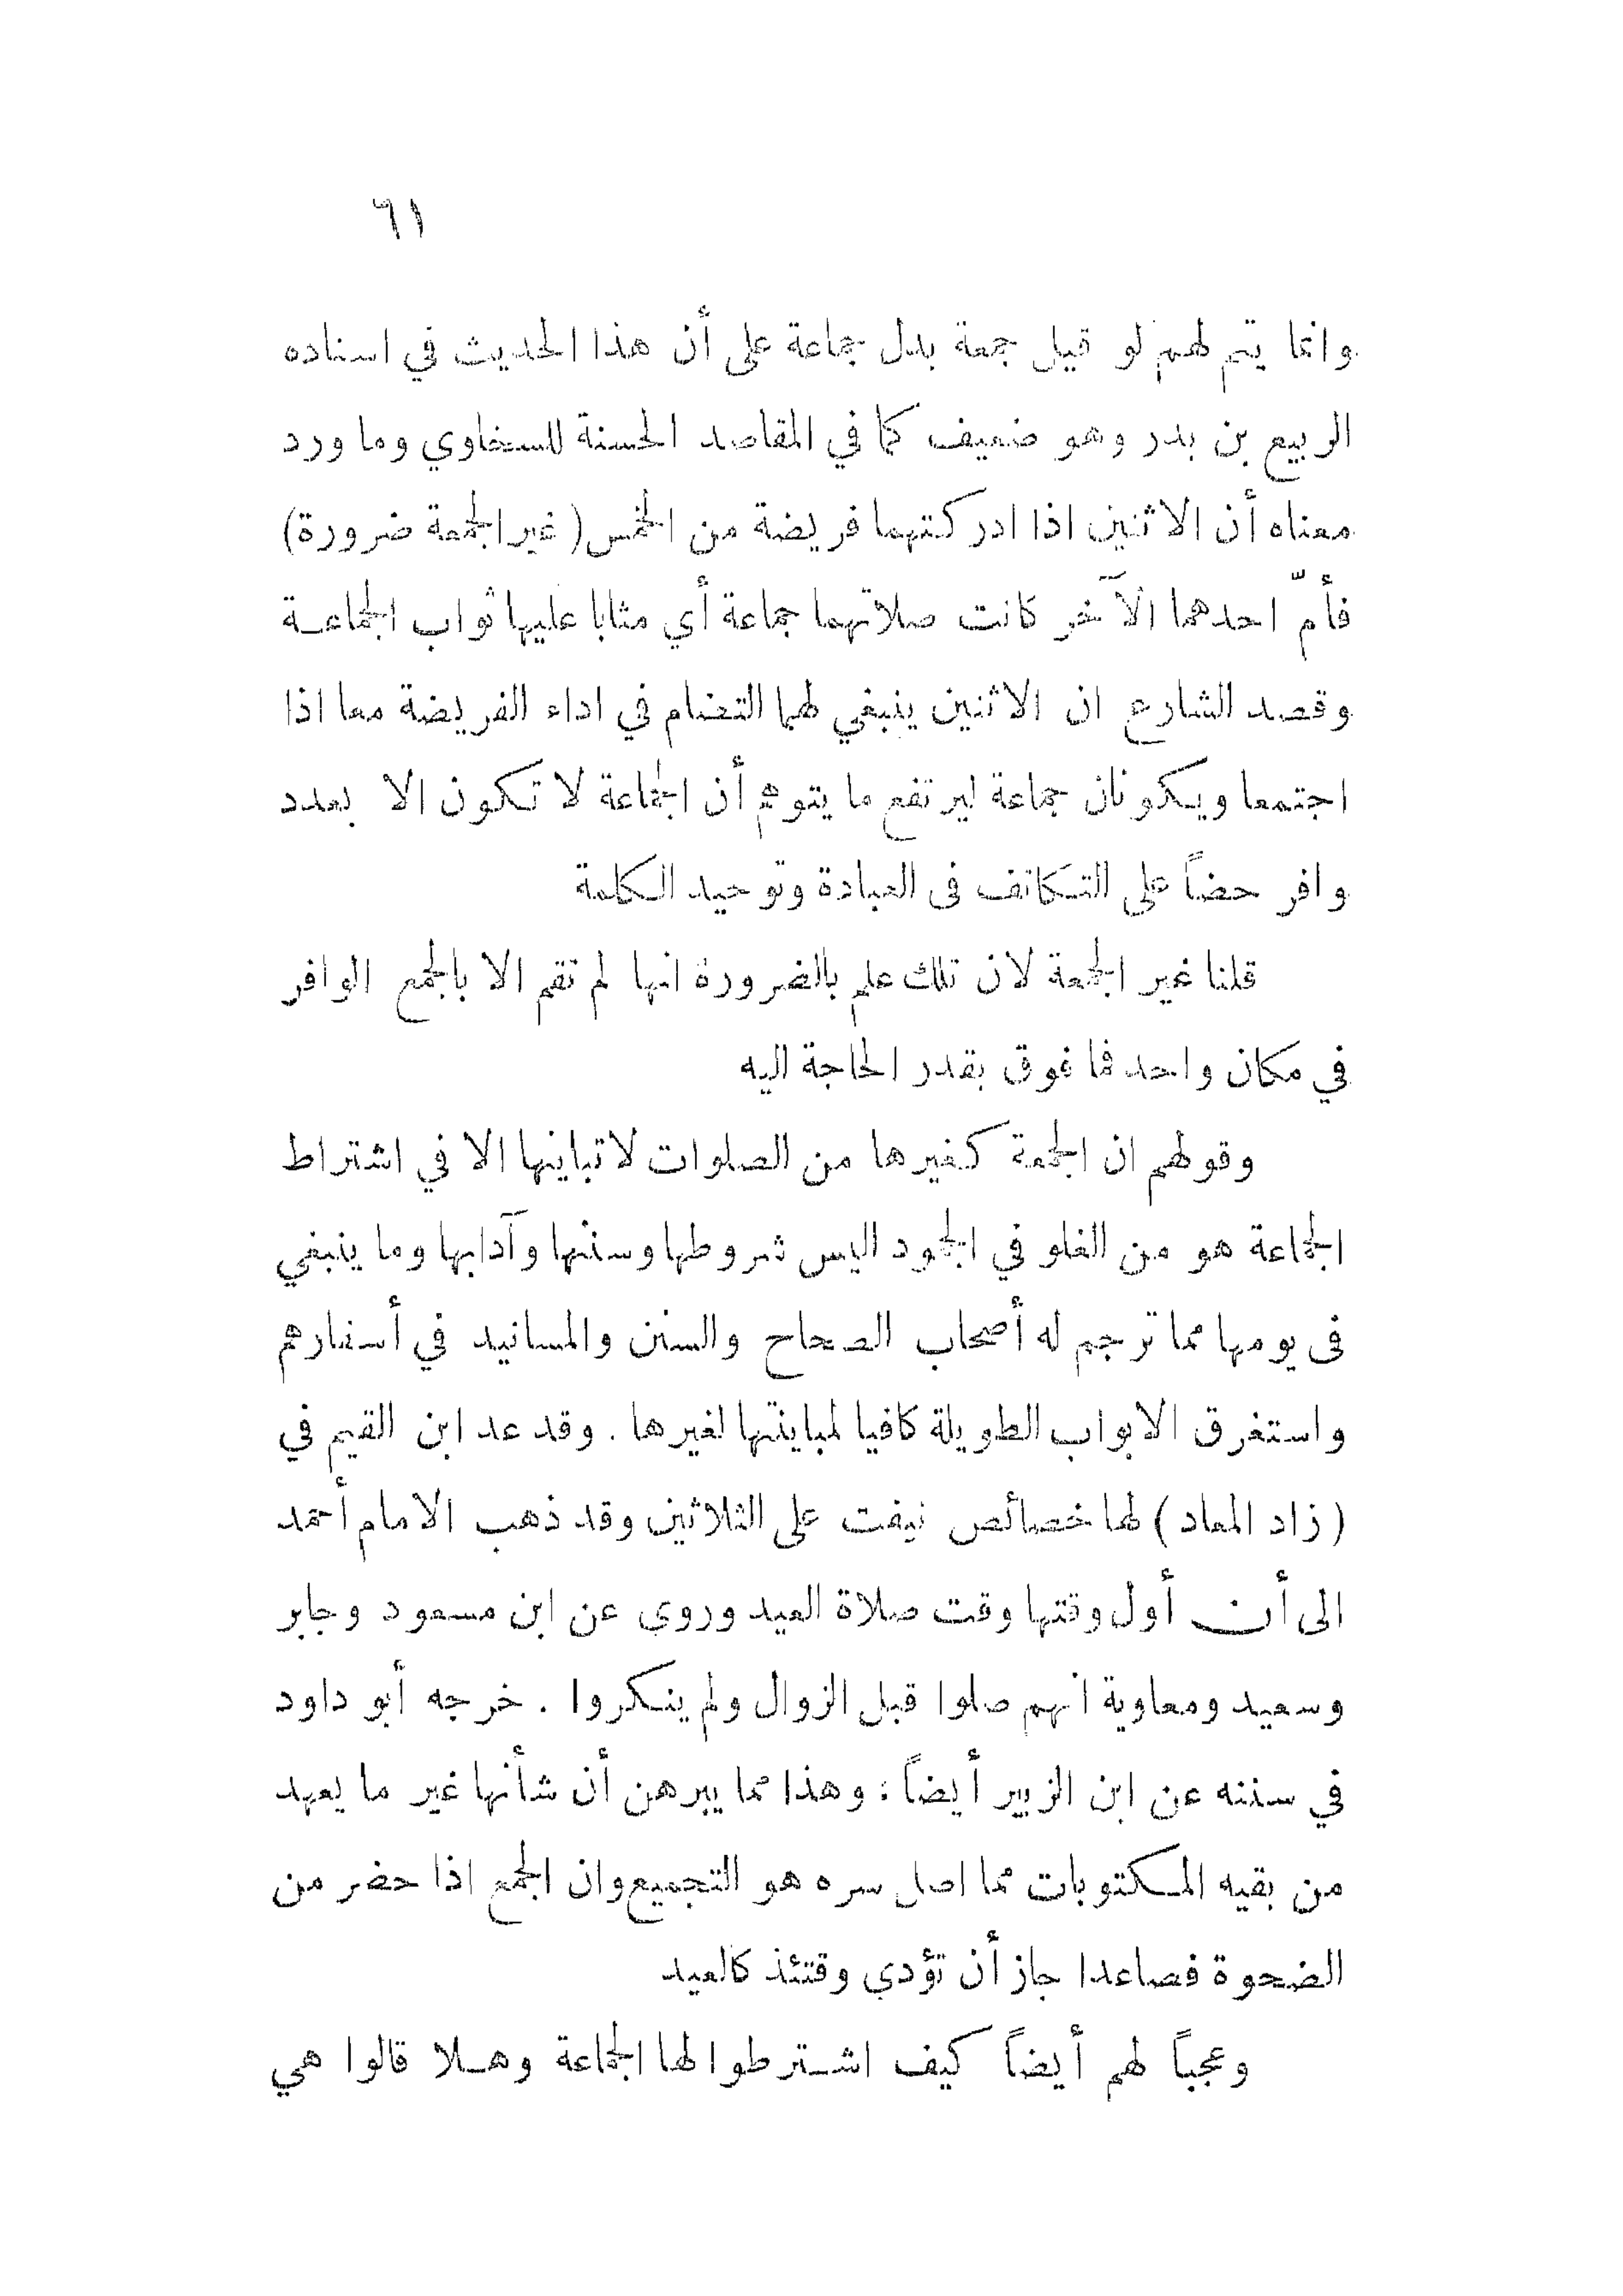 ٦١
وانما يتم لهم لو قيل جمعة بدل جماعة على أن هذا الحديث في اسناده
الربيع بن بدر وهو ضعيف كما في المقاصد الحسنة للسخاوي وما ورد
معناه أن الاثنين اذا ادركتهما فريضة من الخمس (غير الجمعة ضرورة)
فأمّ احدهما الآخر كانت صلاتهما جماعة أي مثابا عليها ثواب الجماعة
وقصد الشارع ان الاثنين ينبغي لهما التضام في اداء الفريضة معا اذا
اجتمعا ويكونان جماعة ليرتفع ما يتوهم أن الجماعة لا تكون الا بعدد
وافر حضاً على التكاتف فى العبادة وتوحيد الكلمة
قلنا غير الجمعة لان تلك علم بالضرورة انها لم تقم الا بالجمع الوافر
في مكان واحد فما فوق بقدر الحاجة اليه
وقولهم ان الجمعة كغيرها من الصلوات لا تباينها الا في اشتراط
الجماعة هو من الغلو في الجمود اليس شروطها وسننها وآدابها وما ينبغي
فى يومها مما ترجم له أصحاب الصحاح والسنن والمسانيد في أسفارهم
واستغرق الابواب الطويلة كافيا لمباينتها لغيرها . وقد عد ابن القيم في
(زاد المعاد) لها خصائص نيفت على الثلاثين وقد ذهب الامام أحمد
الى أن أول وقتها وقت صلاة العيد وروي عن ابن مسعود وجابر
وسعيد ومعاوية انهم صلوا قبل الزوال ولم ينكروا . خرجه أبو داود
في سننه عن ابن الزبير أيضاً : وهذا مما يبرهن أن شأنها غير ما يعهد
من بقيه المكتوبات مما اصل سره هو التجميع وان الجمع اذا حضر من
الضحوة فصاعدا جاز أن تؤدي وقتئذ كالعيد
وعجباً لهم أيضاً كيف اشترطوا لها الجماعة وهلا قالوا هي